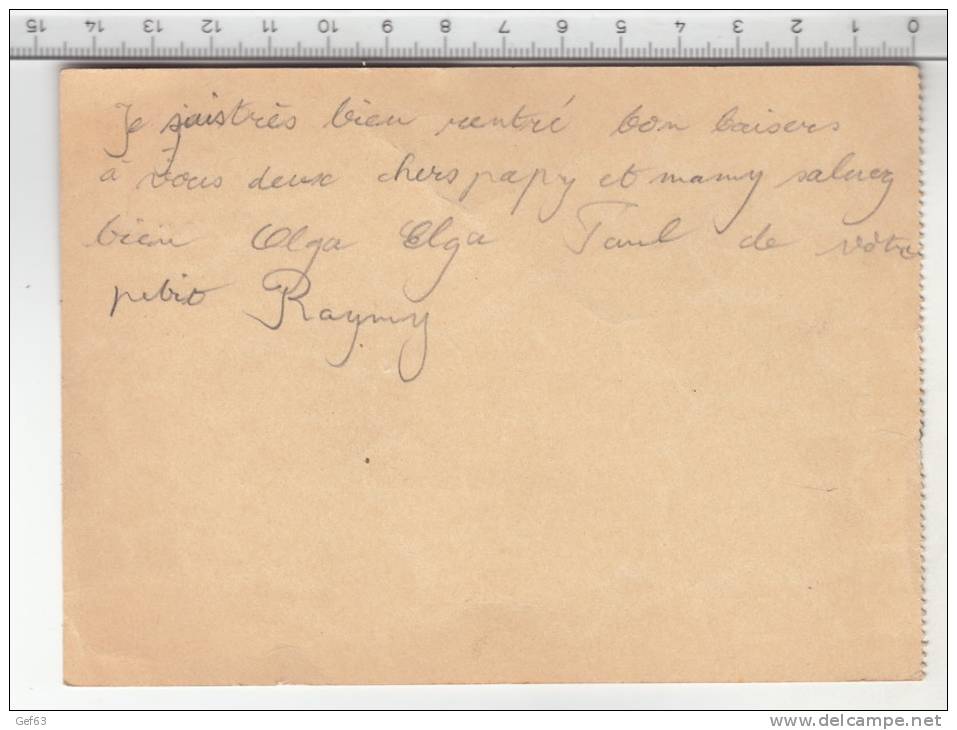 15 14 13 12 11 10 9 8 7 6 5 4 3 2 1 0
Je suis très bien rentré bon baisers
à vous deux chers papy et mamy saluez
bien Olga Elga Paul de vôtre
petit Raymy
Gef63
www.delcampe.net